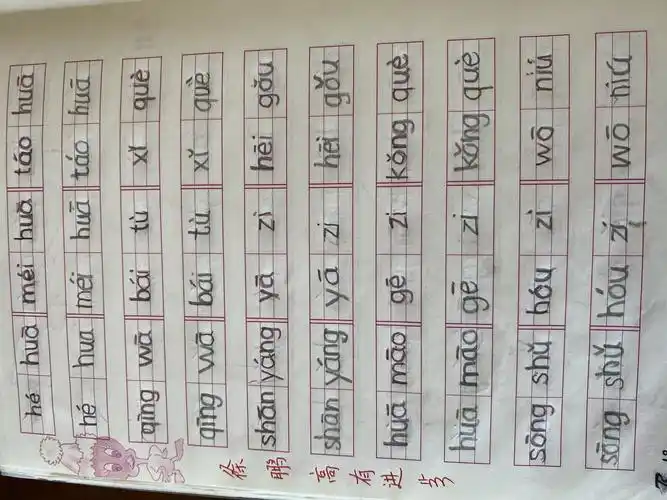 hé huā méi huā táo huā
hé hua méi huā táo huā
qīng wā bái tù xǐ què
qīng wā bái tù xǐ què
shān yáng yā zi hēi gǒu
shān yáng yā zi hēi gǒu
huā māo gē zi kǒng què
huā māo gē zi kǒng què
sōng shǔ hóu zi wō niú
sōng shǔ hóu zi wō niú
徐鹏高有进步